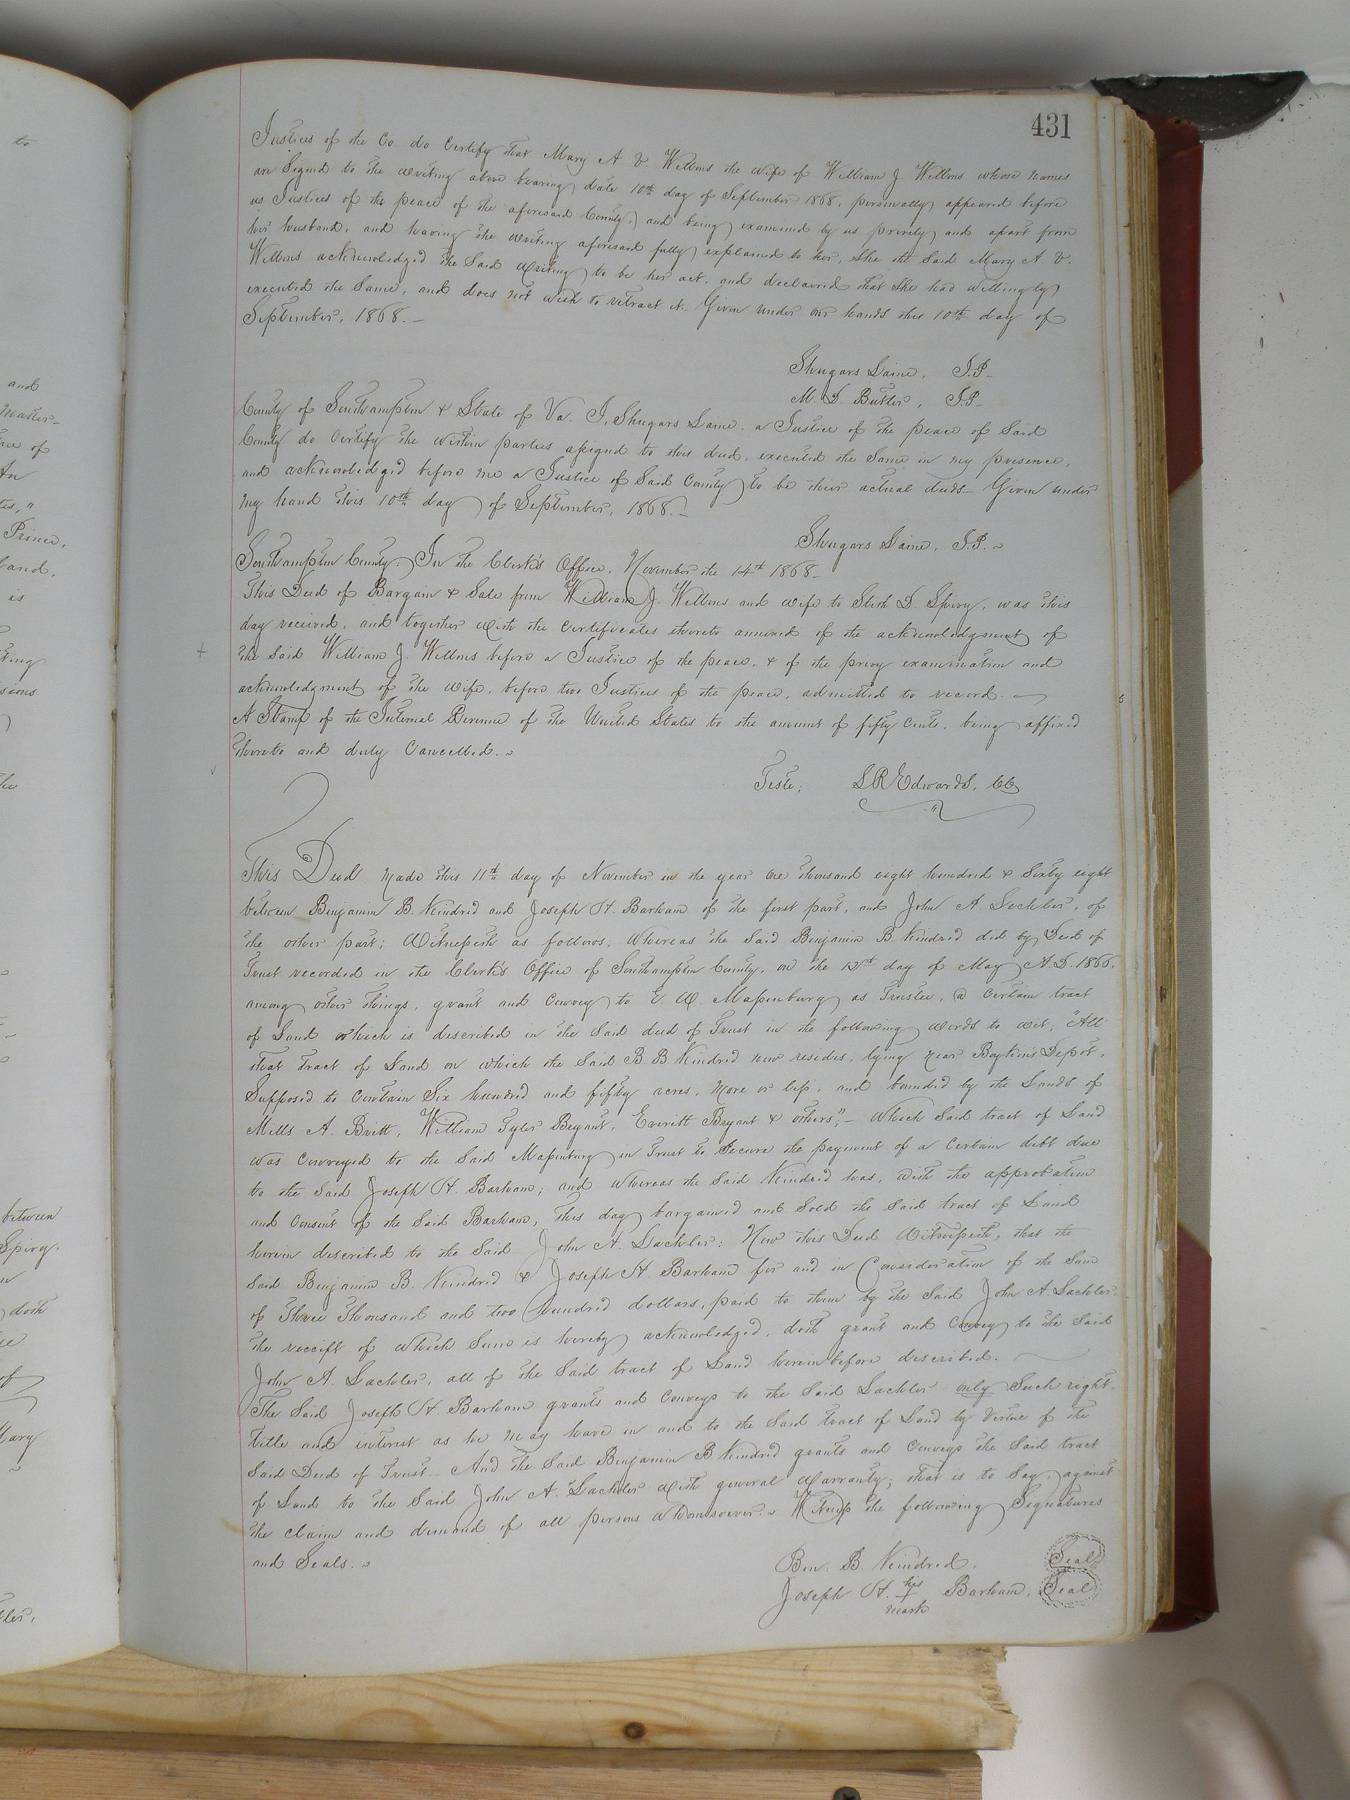 431
Justices of the Co. do Certify that Mary A V. Wellons the wife of William J. Wellons whose names
are Signd to the writing above bearing date 10th day of September 1868, personally appeared before
us Justices of the peace of the aforesaid County, and being examined by us privily and apart from
her husband, and having the writing aforesaid fully explained to her, she the said Mary A. V.
Wellons acknowledged the said writing to be her act, and declared that she had willingly
executed the same, and does not wish to retract it. Given under our hands this 10th day of
September, 1868.
Shugars Laine, J.P.
M. D. Butler, J.P.
County of Southampton & State of Va. I, Shugars Laine, a Justice of the peace of said
County do Certify the within parties assigned to this deed, executed the same in my presence,
and acknowledged before me a Justice of said County to be their actual deeds. Given under
my hand this 10th day of September, 1868.
Shugars Laine, J.P.
Southampton County. In the Clerk's Office, November the 14th 1868
This Deed of Bargain & Sale from William J. Wellons and wife to Stith D. Spivy, was this
day received, and together with the certificates thereto annexed of the acknowledgment of
the said William J. Wellons before a Justice of the peace, & of the privy examination and
acknowledgment of the wife, before two Justices of the peace, admitted to record.
A Stamp of the Internal Revenue of the United States to the amount of fifty cents, being affixed
thereto and duly Cancelled.
Teste; L R Edwards, CC
This Deed made this 11th day of November in the year one thousand eight hundred & Sixty eight
between Benjamin B. Kindred and Joseph H. Barham of the first part, and John A. Lachler, of
the other part; Witnesseth as follows, Whereas the said Benjamin B Kindred did by Deed of
Trust recorded in the Clerk's Office of Southampton County, on the 12th day of May A.D. 1866,
among other things, grant and Convey to E. W. Massenburg as Trustee, a certain tract
of Land which is described in the said deed of Trust in the following words to wit, "All
that tract of Land on which the said B. B. Kindred now resides, lying near Boykins Depot,
Supposed to contain Six hundred and fifty acres, more or less, and bounded by the Lands of
Mills A. Britt, William Tyler Bryant, Everitt Bryant & others", Which said tract of Land
was conveyed to the said Massenburg in Trust to Secure the payment of a certain debt due
to the said Joseph H. Barham; and whereas the said Kindred has, with the approbation
and consent of the said Barham, this day bargained and sold the said tract of Land
herein described to the said John A. Lachler: Now this Deed Witnesseth, that the
said Benjamin B. Kindred & Joseph H Barham for and in Consideration of the Sum
of Three Thousand and two hundred dollars, paid to them by the said John A. Lachler,
the receipt of which Sum is hereby acknowledged, doth grant and Convey to the said
John A. Lachler, all of the said tract of Land hereinbefore described.
The said Joseph H. Barham grants and conveys to the said Lachler only such right,
title and interest as he may have in and to the said tract of Land by virtue of the
said Deed of Trust. And the said Benjamin B Kindred grants and conveys the said tract
of Land to the said John A. Lachler with general warranty; that is to say, against
the claim and demand of all persons whomsoever. Witness the following Signatures
and Seals.
Ben. B. Kindred. Seal
Joseph H. his Barham, Seal
mark